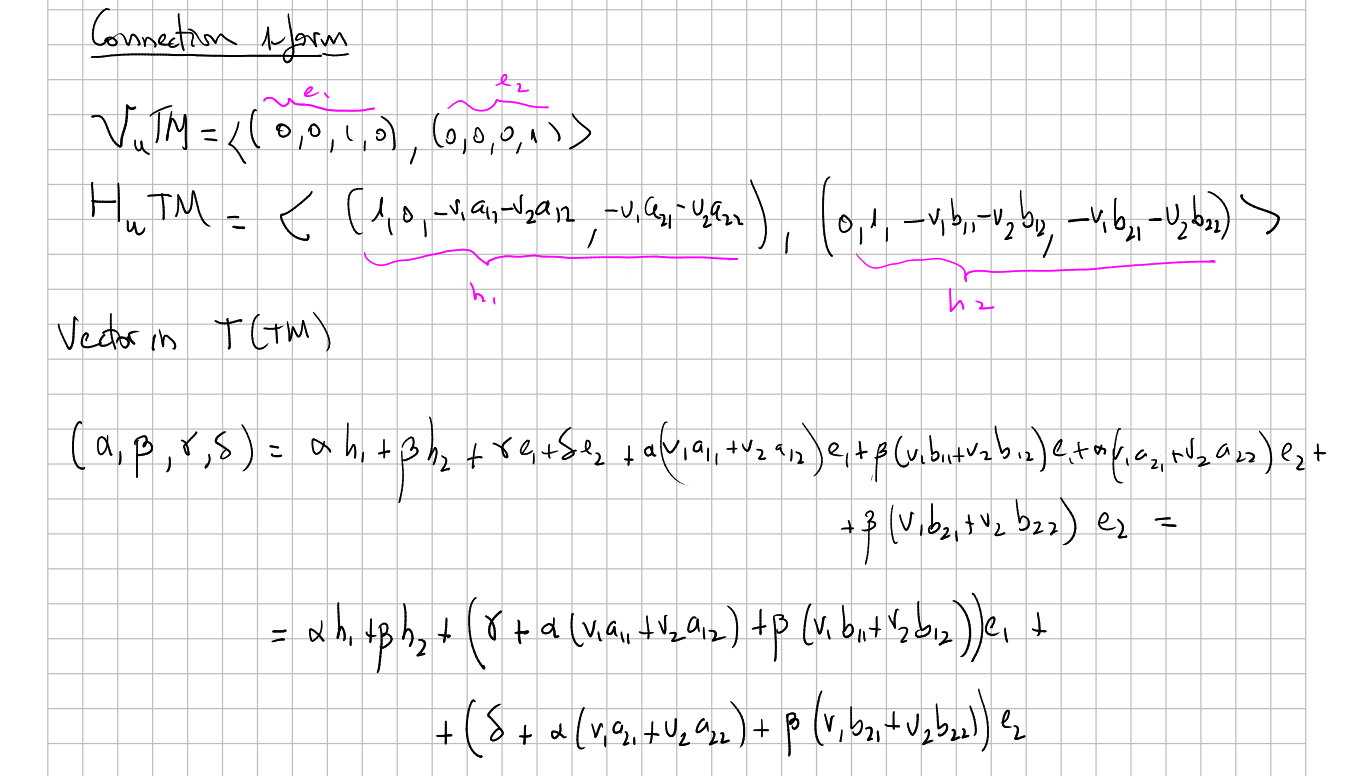 Connection 1-form
e₁ e₂
VᵤTM = <(0,0,1,0), (0,0,0,1)>
HᵤTM = < (1,0,-v₁a₁₁-v₂a₁₂, -v₁a₂₁-v₂a₂₂), (0,1,-v₁b₁₁-v₂b₁₂, -v₁b₂₁-v₂b₂₂)>
h₁ h₂
Vector in T(TM)
(α,β,γ,δ) = αh₁+βh₂+γe₁+δe₂+α(v₁a₁₁+v₂a₁₂)e₁+β(v₁b₁₁+v₂b₁₂)e₁+α(v₁a₂₁+v₂a₂₂)e₂+
+β(v₁b₂₁+v₂b₂₂)e₂ =
= αh₁+βh₂+(γ+α(v₁a₁₁+v₂a₁₂)+β(v₁b₁₁+v₂b₁₂))e₁ +
+(δ+α(v₁a₂₁+v₂a₂₂)+β(v₁b₂₁+v₂b₂₂))e₂